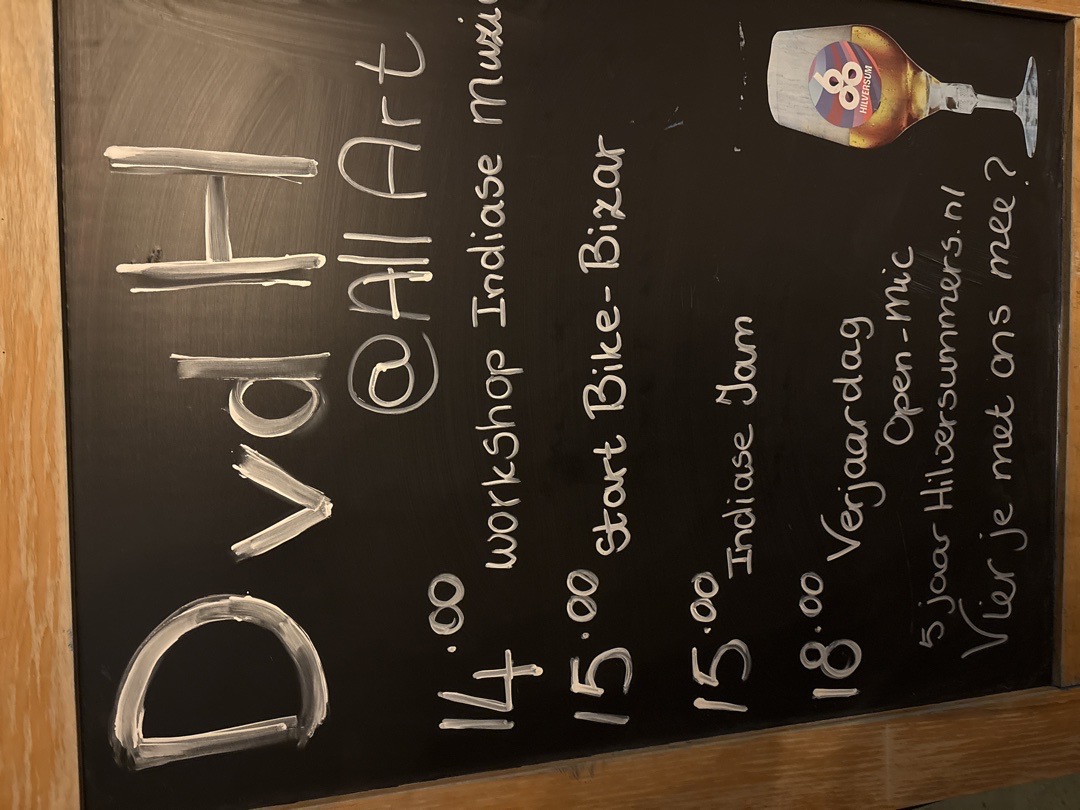 DvdH
@All Art
14.00 workshop Indiase Muzi
15.00 Start Bike-Bizar
15.00 Indiase Jam
18.00 Verjaardag
Open-Mic
5 jaar Hilversummers.nl
Vier je met ons mee?
HILVERSUM